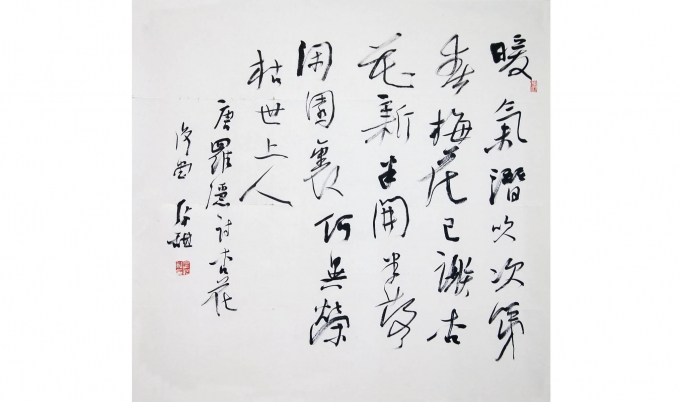 暖氣潛吹次第
春梅花已謝古
花新半開半落
閑園裏何異榮
枯世上人
唐羅隱詩杏花